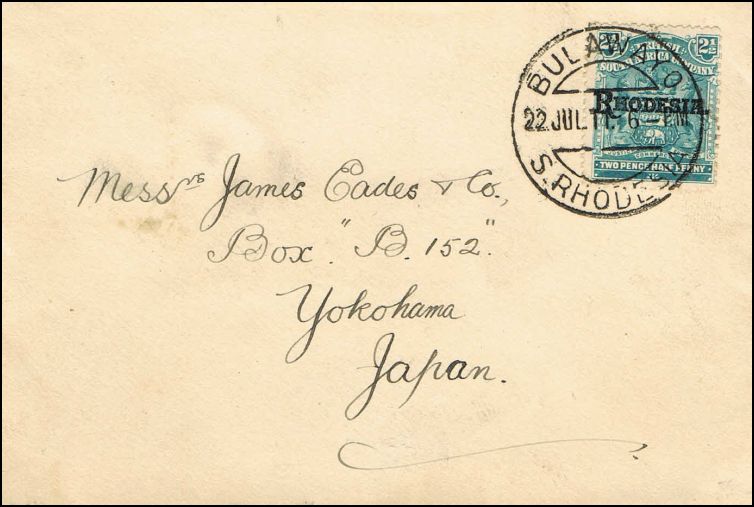 BULAWAYO
22 JUL 11. 6 PM
S. RHODESIA
2½
BRITISH
SOUTH AFRICA COMPANY
RHODESIA.
TWO PENCE HALFPENNY
Messrs James Eades & Co.,
Box "B. 152"
Yokohama
Japan.